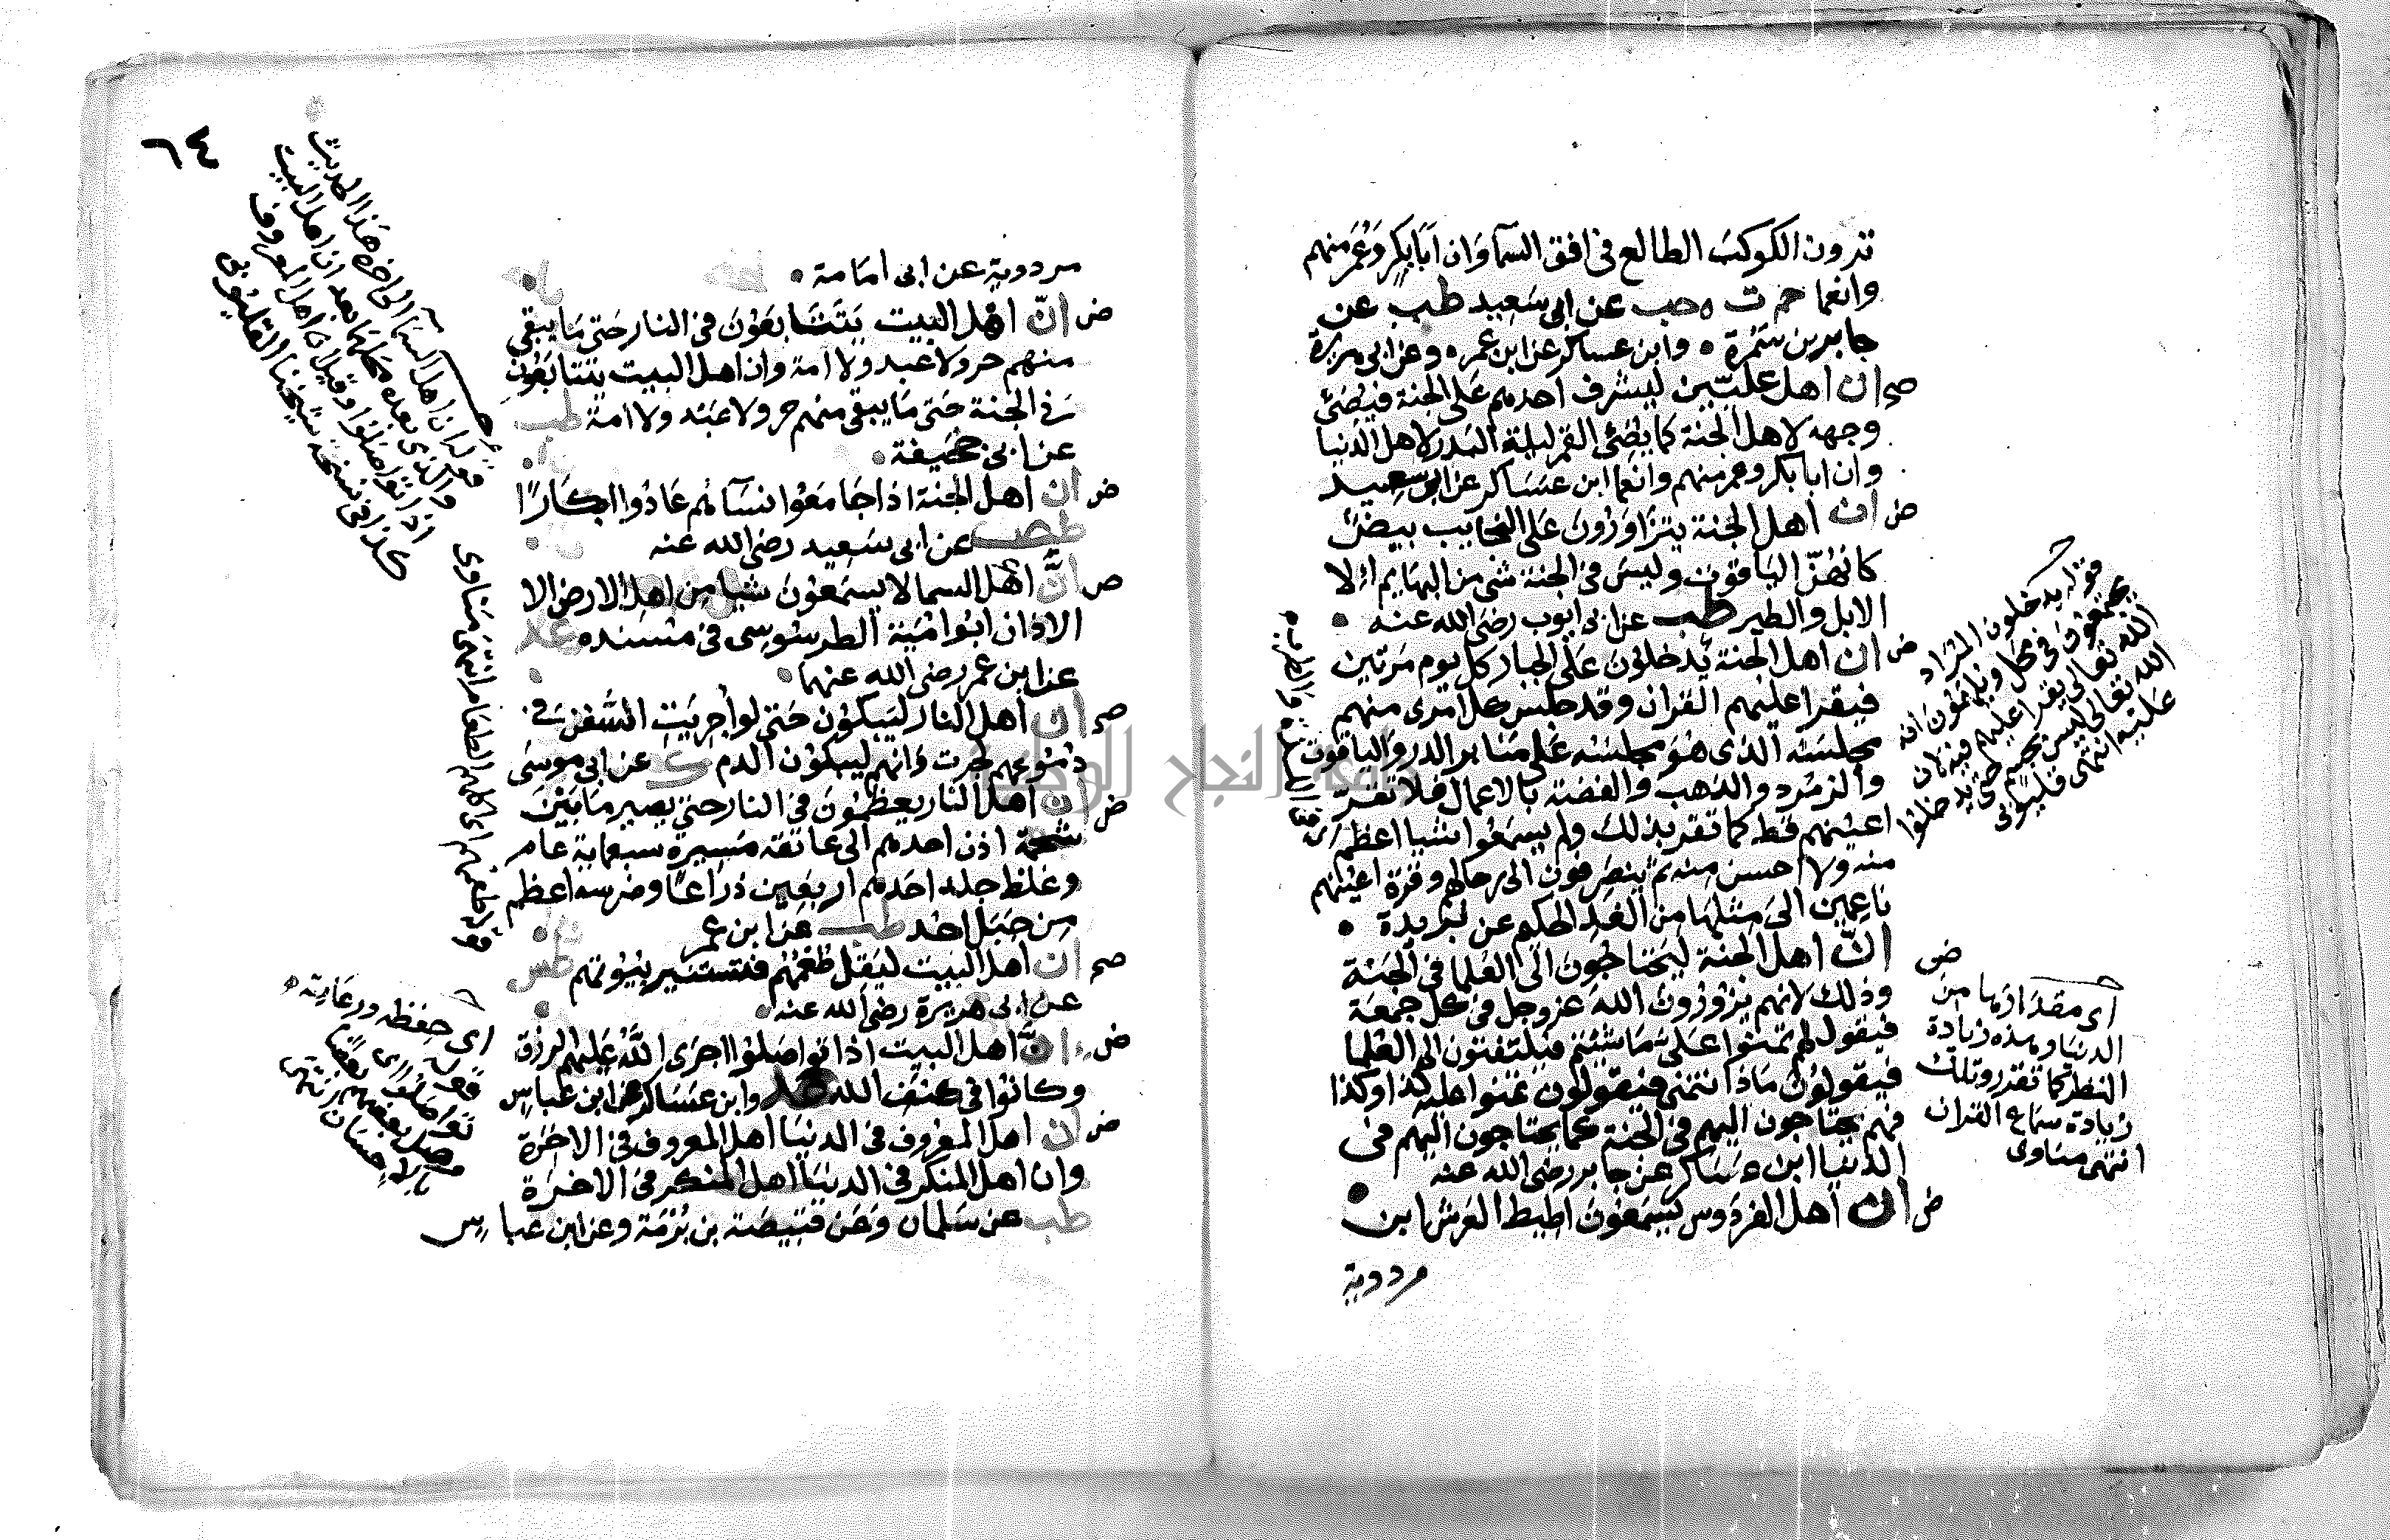 ترون الكوكب الطالع في افق السما وان ابا بكر وعمر منهم
وانعما حم ت ه حب عن ابي سعيد طب عن
جابر بن سمرة • وابن عساكر عن ابن عمر • وعن ابي هريرة
صح ان اهل عليين ليشرف احدهم على الجنة فيضئ
وجهه لاهل الجنة كما يضئ القمر ليلة البدر لاهل الدنيا
وان ابا بكر وعمر منهم وانعما ابن عساكر عن ابي سعيد
ض ان اهل الجنة يتزاورون على النجايب بيض
كانهن الياقوت وليس في الجنة شئ من البهايم الا
الابل والطير طب عن ابي ايوب رضي الله عنه •
ض ان اهل الجنة يدخلون على الجبار كل يوم مرتين
فيقرا عليهم القران وقد جلس كل امرئ منهم
مجلسه الذي هو مجلسه على منابر الدر والياقوت
والزمرد والذهب والفضة بالاعمال فلا تقر
اعينهم قط كما تقر بذلك ولم يسمعوا شيا اعظم
منه ولا احسن منه ثم ينصرفون الى رحالهم وقرة اعينهم
ناعمين الى مثلها من الغد الحكيم عن بريدة •
ض ان اهل الجنة ليحتاجون الى العلما في الجنة
وذلك لانهم يزورون الله عز وجل في كل جمعة
فيقول لهم تمنوا علي ما شئتم فيلتفتون الى العلما
فيقولون ماذا نتمنى فيقولون تمنوا عليه كذا وكذا
فهم يحتاجون اليهم في الجنة كما يحتاجون اليهم في
الدنيا ابن عساكر عن جابر رضي الله عنه •
ض ان اهل الفردوس ليسمعون اطيط العرش ابن
مردوية
قوله يدخلون المراد
يجتمعون في محل ويلهمون ان
الله تعالى يقرا عليهم فيه لان
الله تعالى ليس بجسم حتى يدخلوا
عليه انتهى قليوبي
اي مقدارها من
الدنيا وهذه زيادة
النظر كما تقدر وتلك
زيادة سماع القران
انتهى مناوي
٦٤
مردوية عن ابي امامة •
ض ان اهل البيت يتتابعون في النار حتى ما يبقى
منهم حر ولا عبد ولا امة وان اهل البيت يتتابعون
في الجنة حتى ما يبقى منهم حر ولا عبد ولا امة طب
عن ابي جحيفة •
ض ان اهل الجنة اذا جامعوا نساهم عادوا ابكارا
طص عن ابي سعيد رضي الله عنه
ض ان اهل السما لا يسمعون شيا من اهل الارض الا
الاذان ابو امية الطرسوسي في مسنده عد
عن ابن عمر رضي الله عنهما •
صح ان اهل النار ليبكون حتى لو اجريت السفن في
دموعهم لجرت وانهم ليبكون الدم ك عن ابي موسى
ض ان اهل النار يعظمون في النار حتى يصير ما بين
شحمة اذن احدهم الى عاتقه مسيرة سبعماية عام
وغلظ جلد احدهم اربعين ذراعا وضرسه اعظم
من جبل احد طب عن ابن عمر
صح ان اهل البيت ليقل طعمهم فتستنير بيوتهم طس
عن ابي هريرة رضي الله عنه •
ض ان اهل البيت اذا تواصلوا اجرى الله عليهم الرزق
وكانوا في كنف الله عد وابن عساكر عن ابن عباس
ض ان اهل المعروف في الدنيا اهل المعروف في الاخرة
وان اهل المنكر في الدنيا اهل المنكر في الاخرة
طب عن سلمان وعن قبيصة بن برمة وعن ابن عباس
قوله ان اهل السما الى اخره هذا الحديث
والذي بعده محلهما بعد ان اهل البيت
اذا تواصلوا وقيل ان اهل المعروف
كذا في نسخة شيخنا القليوبي
اي حفظه ورعايته •
قوله
تواصلوا اي
وصل بعضهم بعضا
بالاحسان انتهى